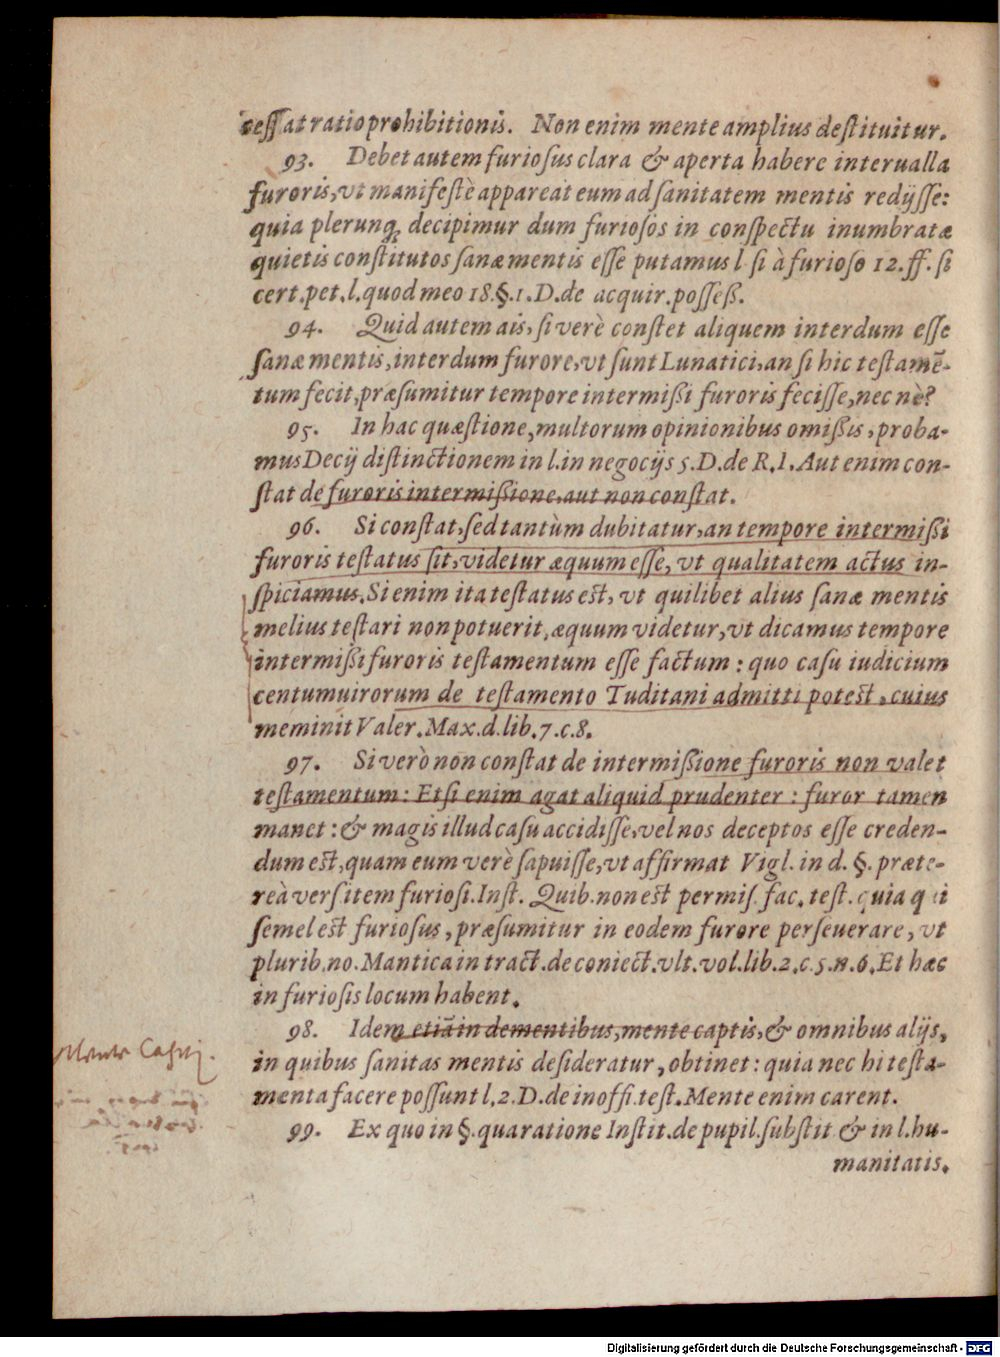 cessat ratio prohibitionis. Non enim mente amplius destituitur.
93. Debet autem furiosus clara & aperta habere interualla
furoris, vt manifestè appareat eum ad sanitatem mentis redijsse:
quia plerunq; decipimur dum furiosos in conspectu inumbratæ
quietis constitutos sanæ mentis esse putamus l si à furioso 12. ff. si
cert. pet. l. quod meo 18. §. 1. D. de acquir. posseß.
94. Quid autem ais, si verè constet aliquem interdum esse
sanæ mentis, interdum furore, vt sunt Lunatici, an si hic testamē-
tum fecit, præsumitur tempore intermißi furoris fecisse, nec nè?
95. In hac quæstione, multorum opinionibus omißis, proba-
mus Decij distinctionem in l. in negocijs 5. D. de R. I. Aut enim con-
stat de furoris intermißione, aut non constat.
96. Si constat, sed tantùm dubitatur, an tempore intermißi
furoris testatus sit, videtur æquum esse, vt qualitatem actus in-
spiciamus. Si enim ita testatus est, vt quilibet alius sanæ mentis
melius testari non potuerit, æquum videtur, vt dicamus tempore
intermißi furoris testamentum esse factum: quo casu iudicium
centumuirorum de testamento Tuditani admitti potest, cuius
meminit Valer. Max. d. lib. 7. c. 8.
97. Si verò non constat de intermißione furoris non valet
testamentum: Etsi enim agat aliquid prudenter: furor tamen
manet: & magis illud casu accidisse, vel nos deceptos esse creden-
dum est, quam eum verè sapuisse, vt affirmat Vigl. in d. §. præte-
reà versitem furiosi. Inst. Quib. non est permis. fac. test. quia qui
semel est furiosus, præsumitur in eodem furore perseuerare, vt
plurib. no. Mantica in tract. de coniect. vlt. vol. lib. 2. c. 5. n. 6. Et hæc
in furiosis locum habent.
98. Idem etiā in dementibus, mente captis, & omnibus alijs,
in quibus sanitas mentis desideratur, obtinet: quia nec hi testa-
menta facere possunt l. 2. D. de inoffi. test. Mente enim carent.
Mente Captj.
99. Ex quo in §. qua ratione Instit. de pupil. substit & in l. hu-
manitatis.
Digitalisierung gefördert durch die Deutsche Forschungsgemeinschaft - DFG